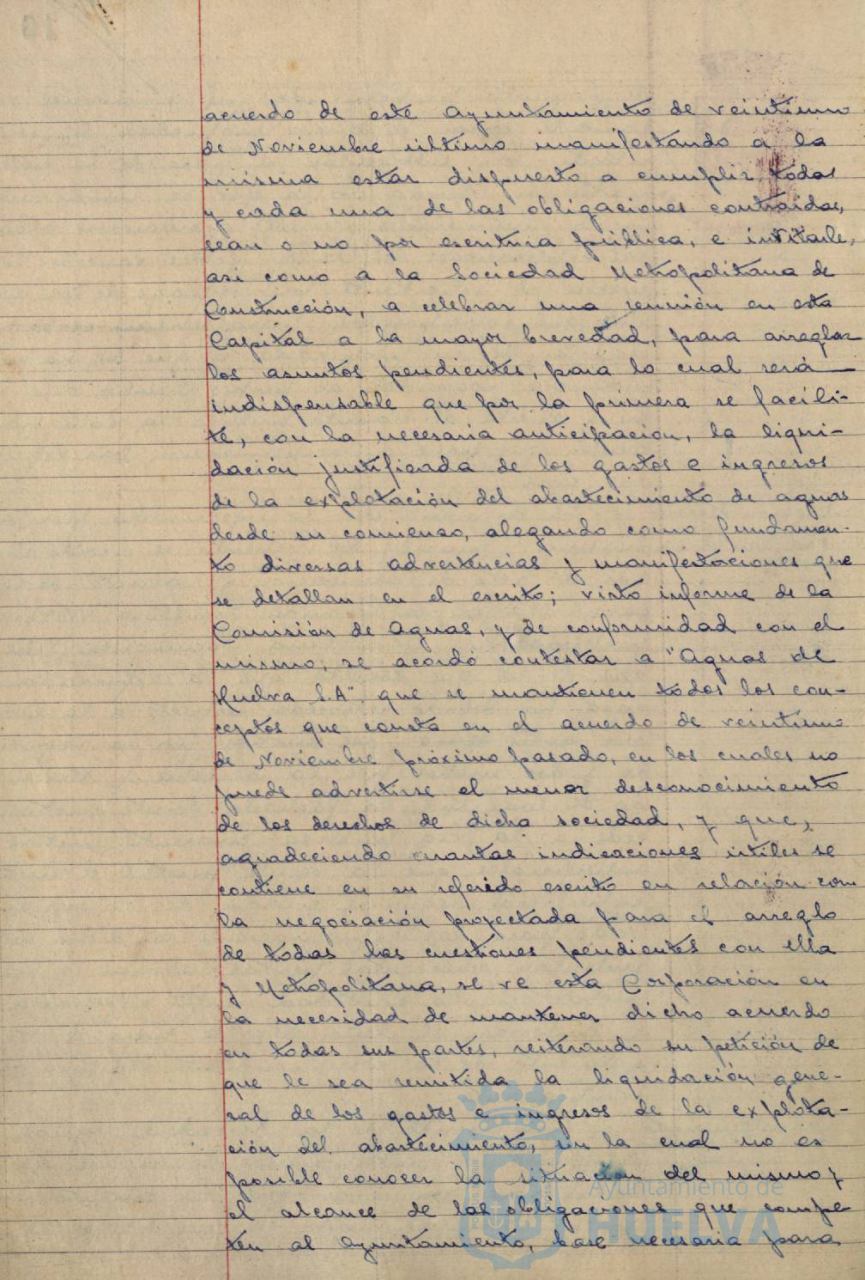 acuerdo de este Ayuntamiento de veintiuno
de Noviembre último manifestando a la
misma estar dispuesto a cumplir todas
y cada una de las obligaciones contraidas,
sean o no por escritura pública, e invitarle,
asi como a la Sociedad Metropolitana de
Construcción, a celebrar una reunión en esta
Capital a la mayor brevedad, para arreglar
los asuntos pendientes, para lo cual será
indispensable que por la primera se facili-
te, con la necesaria anticipacion, la liqui-
dación justificada de los gastos e ingresos
de la explotación del abastecimiento de aguas
desde su comienzo, alegando como fundamen-
to diversas advertencias y manifestaciones que
se detallan en el escrito; visto informe de la
Comisión de Aguas, y de conformidad con el
mismo, se acordó contestar a "Aguas de
Huelva S.A". que se mantienen todos los con-
ceptos que consta en el acuerdo de veintiuno
de Noviembre próximo pasado, en los cuales no
puede advertirse el menor desconocimiento
de los derechos de dicha sociedad, y que,
agradeciendo cuantas indicaciones útiles se
contiene en su referido escrito en relación con
la negociación proyectada para el arreglo
de todas las cuestiones pendientes con ella
y Metropolitana, se ve esta Corporación en
la necesidad de mantener dicho acuerdo
en todas sus partes, reiterando su petición de
que le sea remitida la liquidación gene-
ral de los gastos e ingresos de la explota-
ción del abastecimiento, sin la cual no es
posible conocer la situacion del mismo y
el alcance de las obligaciones que compe
ten al Ayuntamiento, base necesaria para
Ayuntamiento de
HUELVA